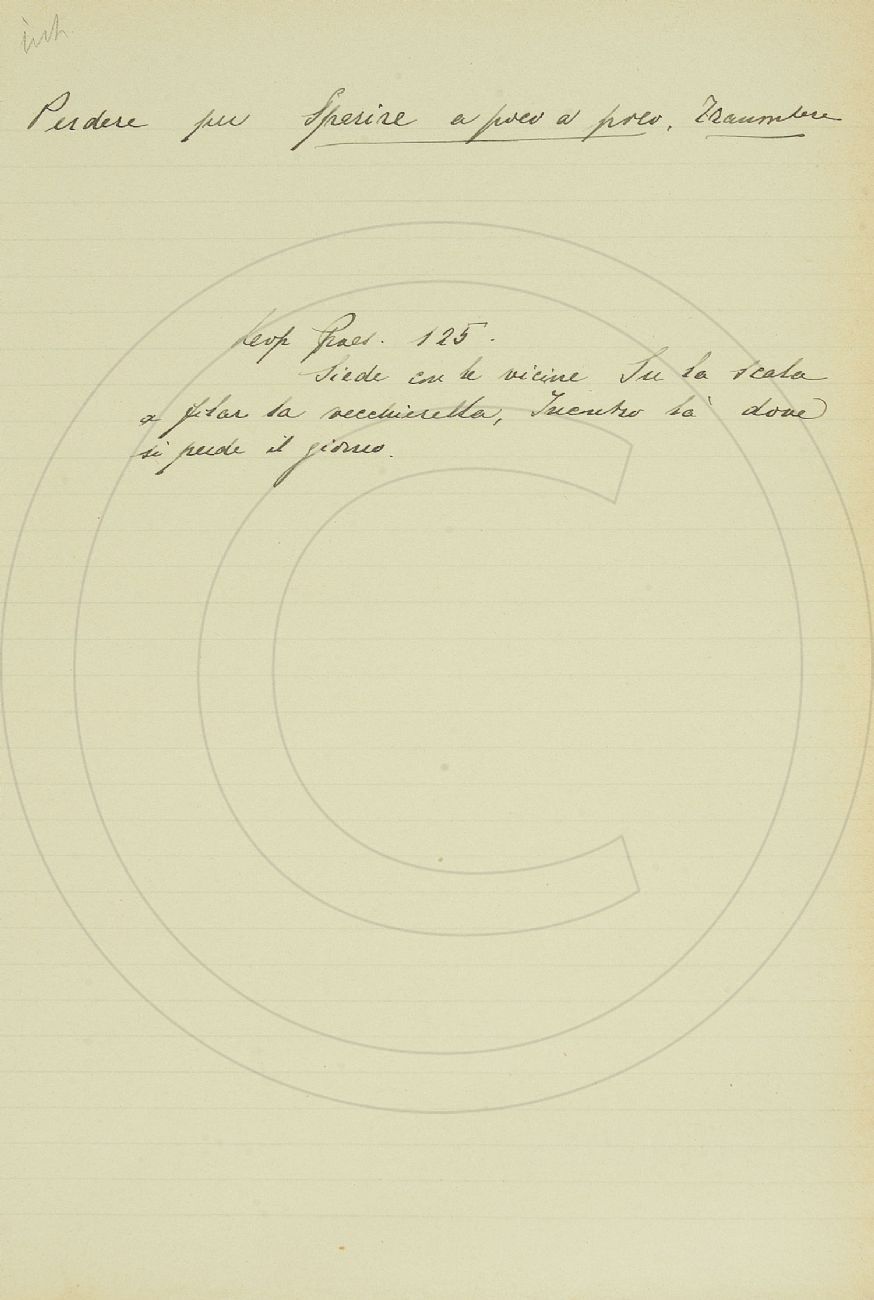 Perdere per Sparire a poco a poco, Tramontare
Leop Poes. 125.
Siede con le vicine Su la scala
a filar la vecchierella, Incontro là dove
si perde il giorno.